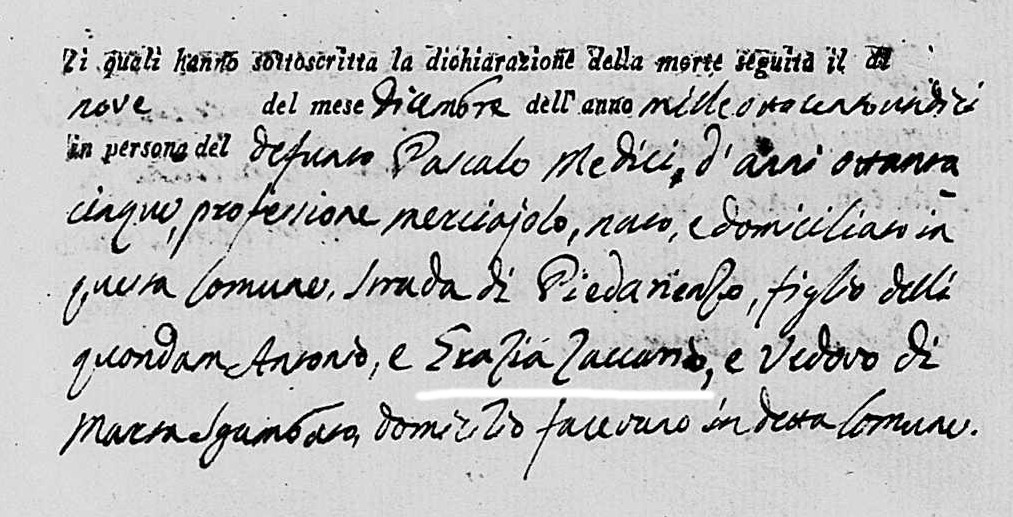 Ti quali hanno sottoscritta la dichiarazione della morte seguita il dì
nove del mese Dicembre dell' anno mille ottocento undici
in persona del defunto Pascale Medici, d' anni ottanta
cinque, professione merciajolo, nato, e domiciliato in
questa Comune, strada di Piedarienzo, figlio delli
quondam Antonio, e Grazia Zaccario, e Vedovo di
Marta Sgambato, domicilio facevano in detta Comune.